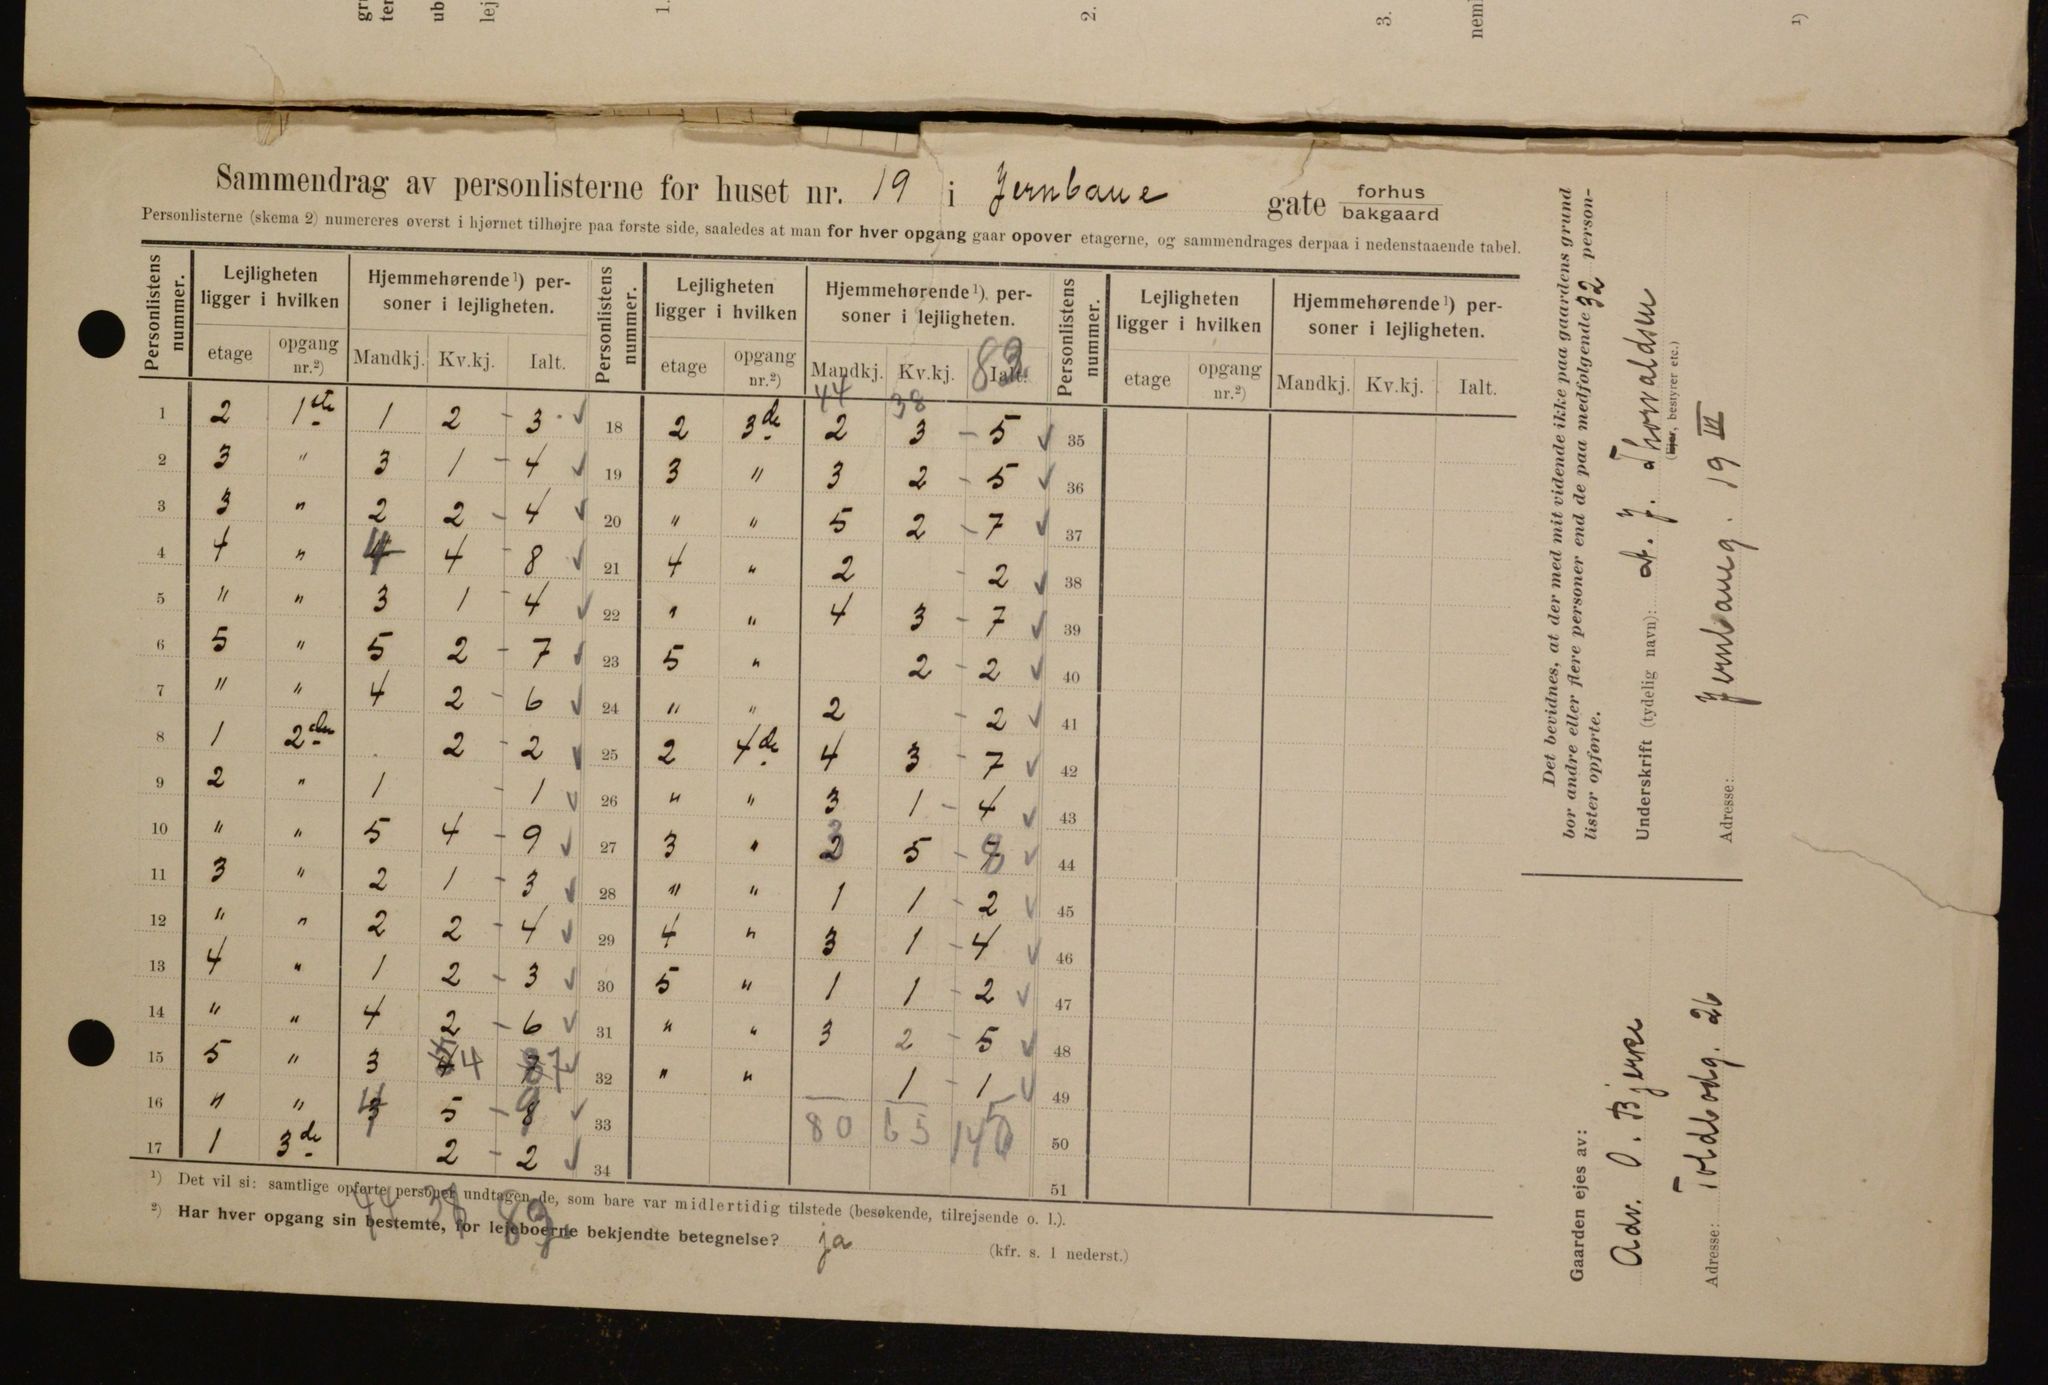 gr
ter
ub
lej
1.
2.
3.
nemi
1)
Sammendrag av personlisterne for huset nr. 19 i Jernbane gate forhus bakgaard
Personlisterne (skema 2) numereres øverst i hjørnet tilhøjre paa første side, saaledes at man for hver opgang gaar opover etagerne, og sammendrages derpaa i nedenstaaende tabel.
Personlistens nummer. | Lejligheten ligger i hvilken | Hjemmehørende ¹) personer i lejligheten. | Personlistens nummer. | Lejligheten ligger i hvilken | Hjemmehørende ¹) personer i lejligheten. | Personlistens nummer. | Lejligheten ligger i hvilken | Hjemmehørende ¹) personer i lejligheten.
etage | opgang nr.²) | Mandkj. | Kv.kj. | Ialt. | etage | opgang nr.²) | Mandkj. | Kv.kj. | Ialt. | etage | opgang nr.²) | Mandkj. | Kv.kj. | Ialt.
44 38
1 2 1ste 1 2 - 3 ✓ 18 2 3de 2 3 - 5 ✓ 35
2 3 " 3 1 - 4 ✓ 19 3 " 3 2 - 5 ✓ 36
3 3 " 2 2 - 4 ✓ 20 " " 5 2 - 7 ✓ 37
4 4 " 4 4 - 8 ✓ 21 4 " 2 - 2 ✓ 38
5 " " 3 1 - 4 ✓ 22 " " 4 3 - 7 ✓ 39
6 5 " 5 2 - 7 ✓ 23 5 " 2 - 2 ✓ 40
7 " " 4 2 - 6 ✓ 24 " " 2 - 2 ✓ 41
8 1 2den 2 - 2 ✓ 25 2 4de 4 3 - 7 ✓ 42
9 2 " 1 - 1 ✓ 26 " " 3 1 - 4 ✓ 43
10 " " 5 4 - 9 ✓ 27 3 " 3 5 - 8 ✓ 44
11 3 " 2 1 - 3 ✓ 28 " " 1 1 - 2 ✓ 45
12 " " 2 2 - 4 ✓ 29 4 " 3 1 - 4 ✓ 46
13 4 " 1 2 - 3 ✓ 30 5 " 1 1 - 2 ✓ 47
14 " " 4 2 - 6 ✓ 31 " " 3 2 - 5 ✓ 48
15 5 " 3 4 7 ✓ 32 " " 1 - 1 ✓ 49
16 " " 4 5 - 9 ✓ 33 80 65 145 50
17 1 3de 2 - 2 ✓ 34 51
¹) Det vil si: samtlige opførte personer undtagen de, som bare var midlertidig tilstede (besøkende, tilrejsende o. l.).
44
²) Har hver opgang sin bestemte, for lejeboerne bekjendte betegnelse? ja (kfr. s. 1 nederst.)
Det bevidnes, at der med mit vidende ikke paa gaardens grund
bor andre eller flere personer end de paa medfølgende 32 person-
lister opførte.
Underskrift (tydelig navn): A. J. Thorvaldsen
(Ejer, bestyrer etc.)
Adresse: Jernbaneg. 19 III
Gaarden ejes av:
Adv. O. Bjerke
Adresse: Toldbodg. 26